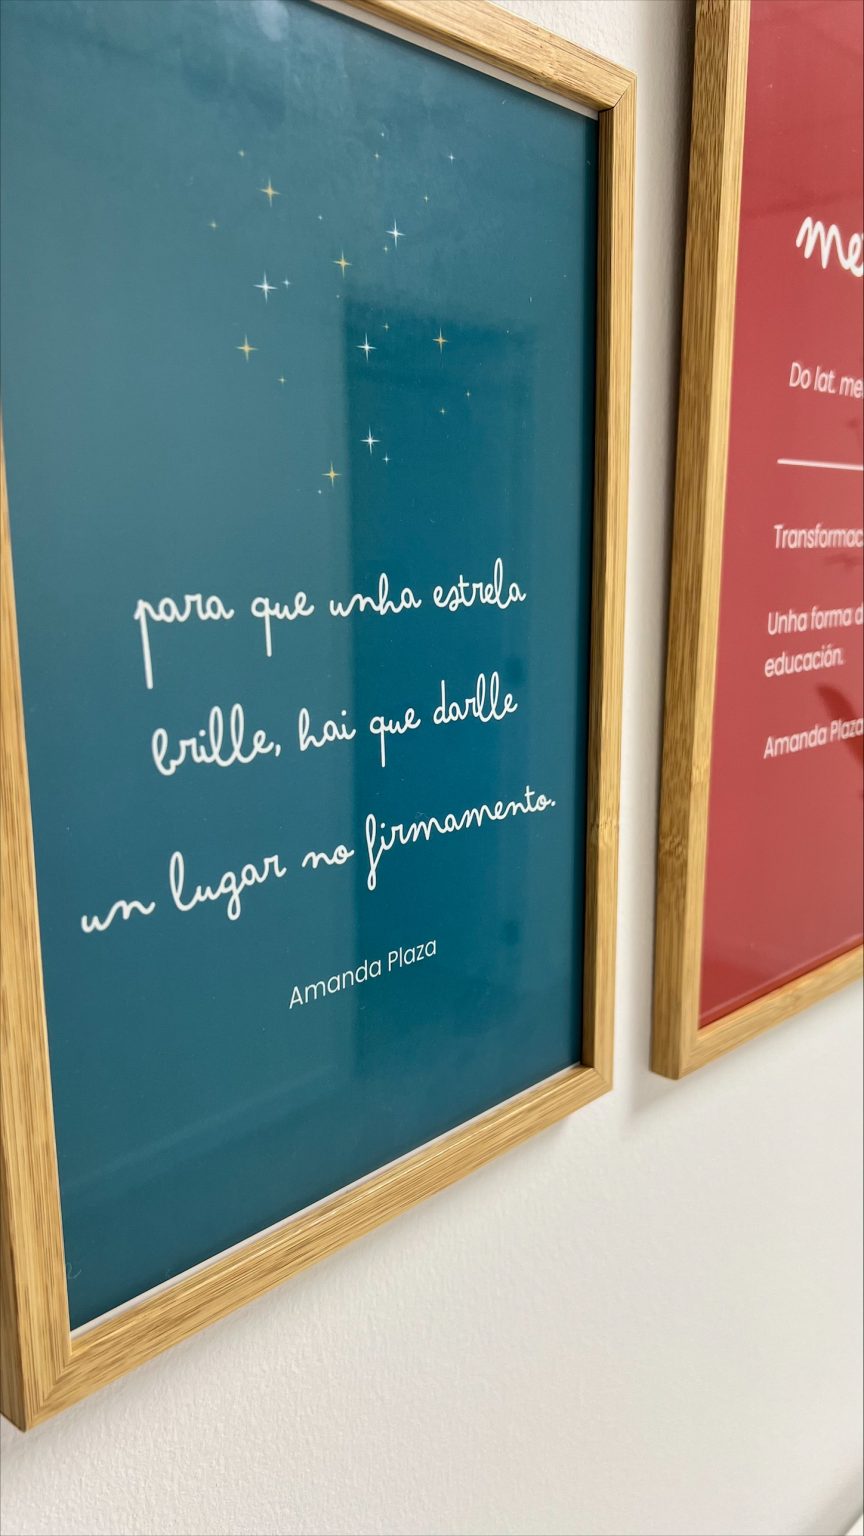 para que unha estrela
brille, hai que darlle
un lugar no firmamento.
Amanda Plaza
Do lat.
Unha forma
educación.
Amanda Plaza